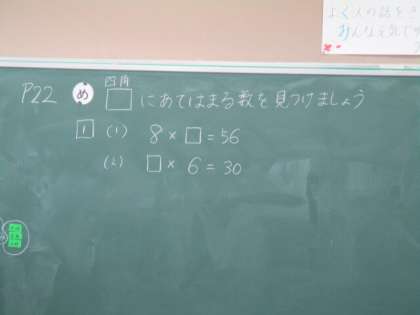 よく人の話をき
みんな元気で
四角
P22 め □にあてはまる数を見つけましょう
1 (1) 8×□=56
(2) □×6=30